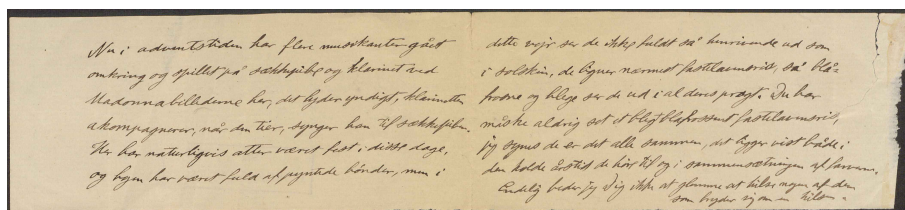 Nu i adventstiden har flere musikanter gået
omkring og spillet på sækkepibe og klarinet ved
Madonnabillederne her, det lyder yndigt, klarinetten
akompagnerer, når den tier, synger han til sækkepiben.
Her har naturligvis atter været fest i disse dage,
og byen har været fuld af pyntede bønder, men i
dette vejr ser de ikke fuldt så henrivende ud som
i solskin, de ligner nærmest fastelavnsris, så blå-
frosne og blege ser de ud i al deres pragt. Du har
måske aldrig set et blegt blåfrossent fastelavnsris,
jeg synes de er det alle sammen, det ligger vist både i
den kolde årstid de hør til og i sammensætningen af farverne.
Endelig beder jeg Dig ikke at glemme at hilse nogen af dem
som bryder sig om en hilsen.